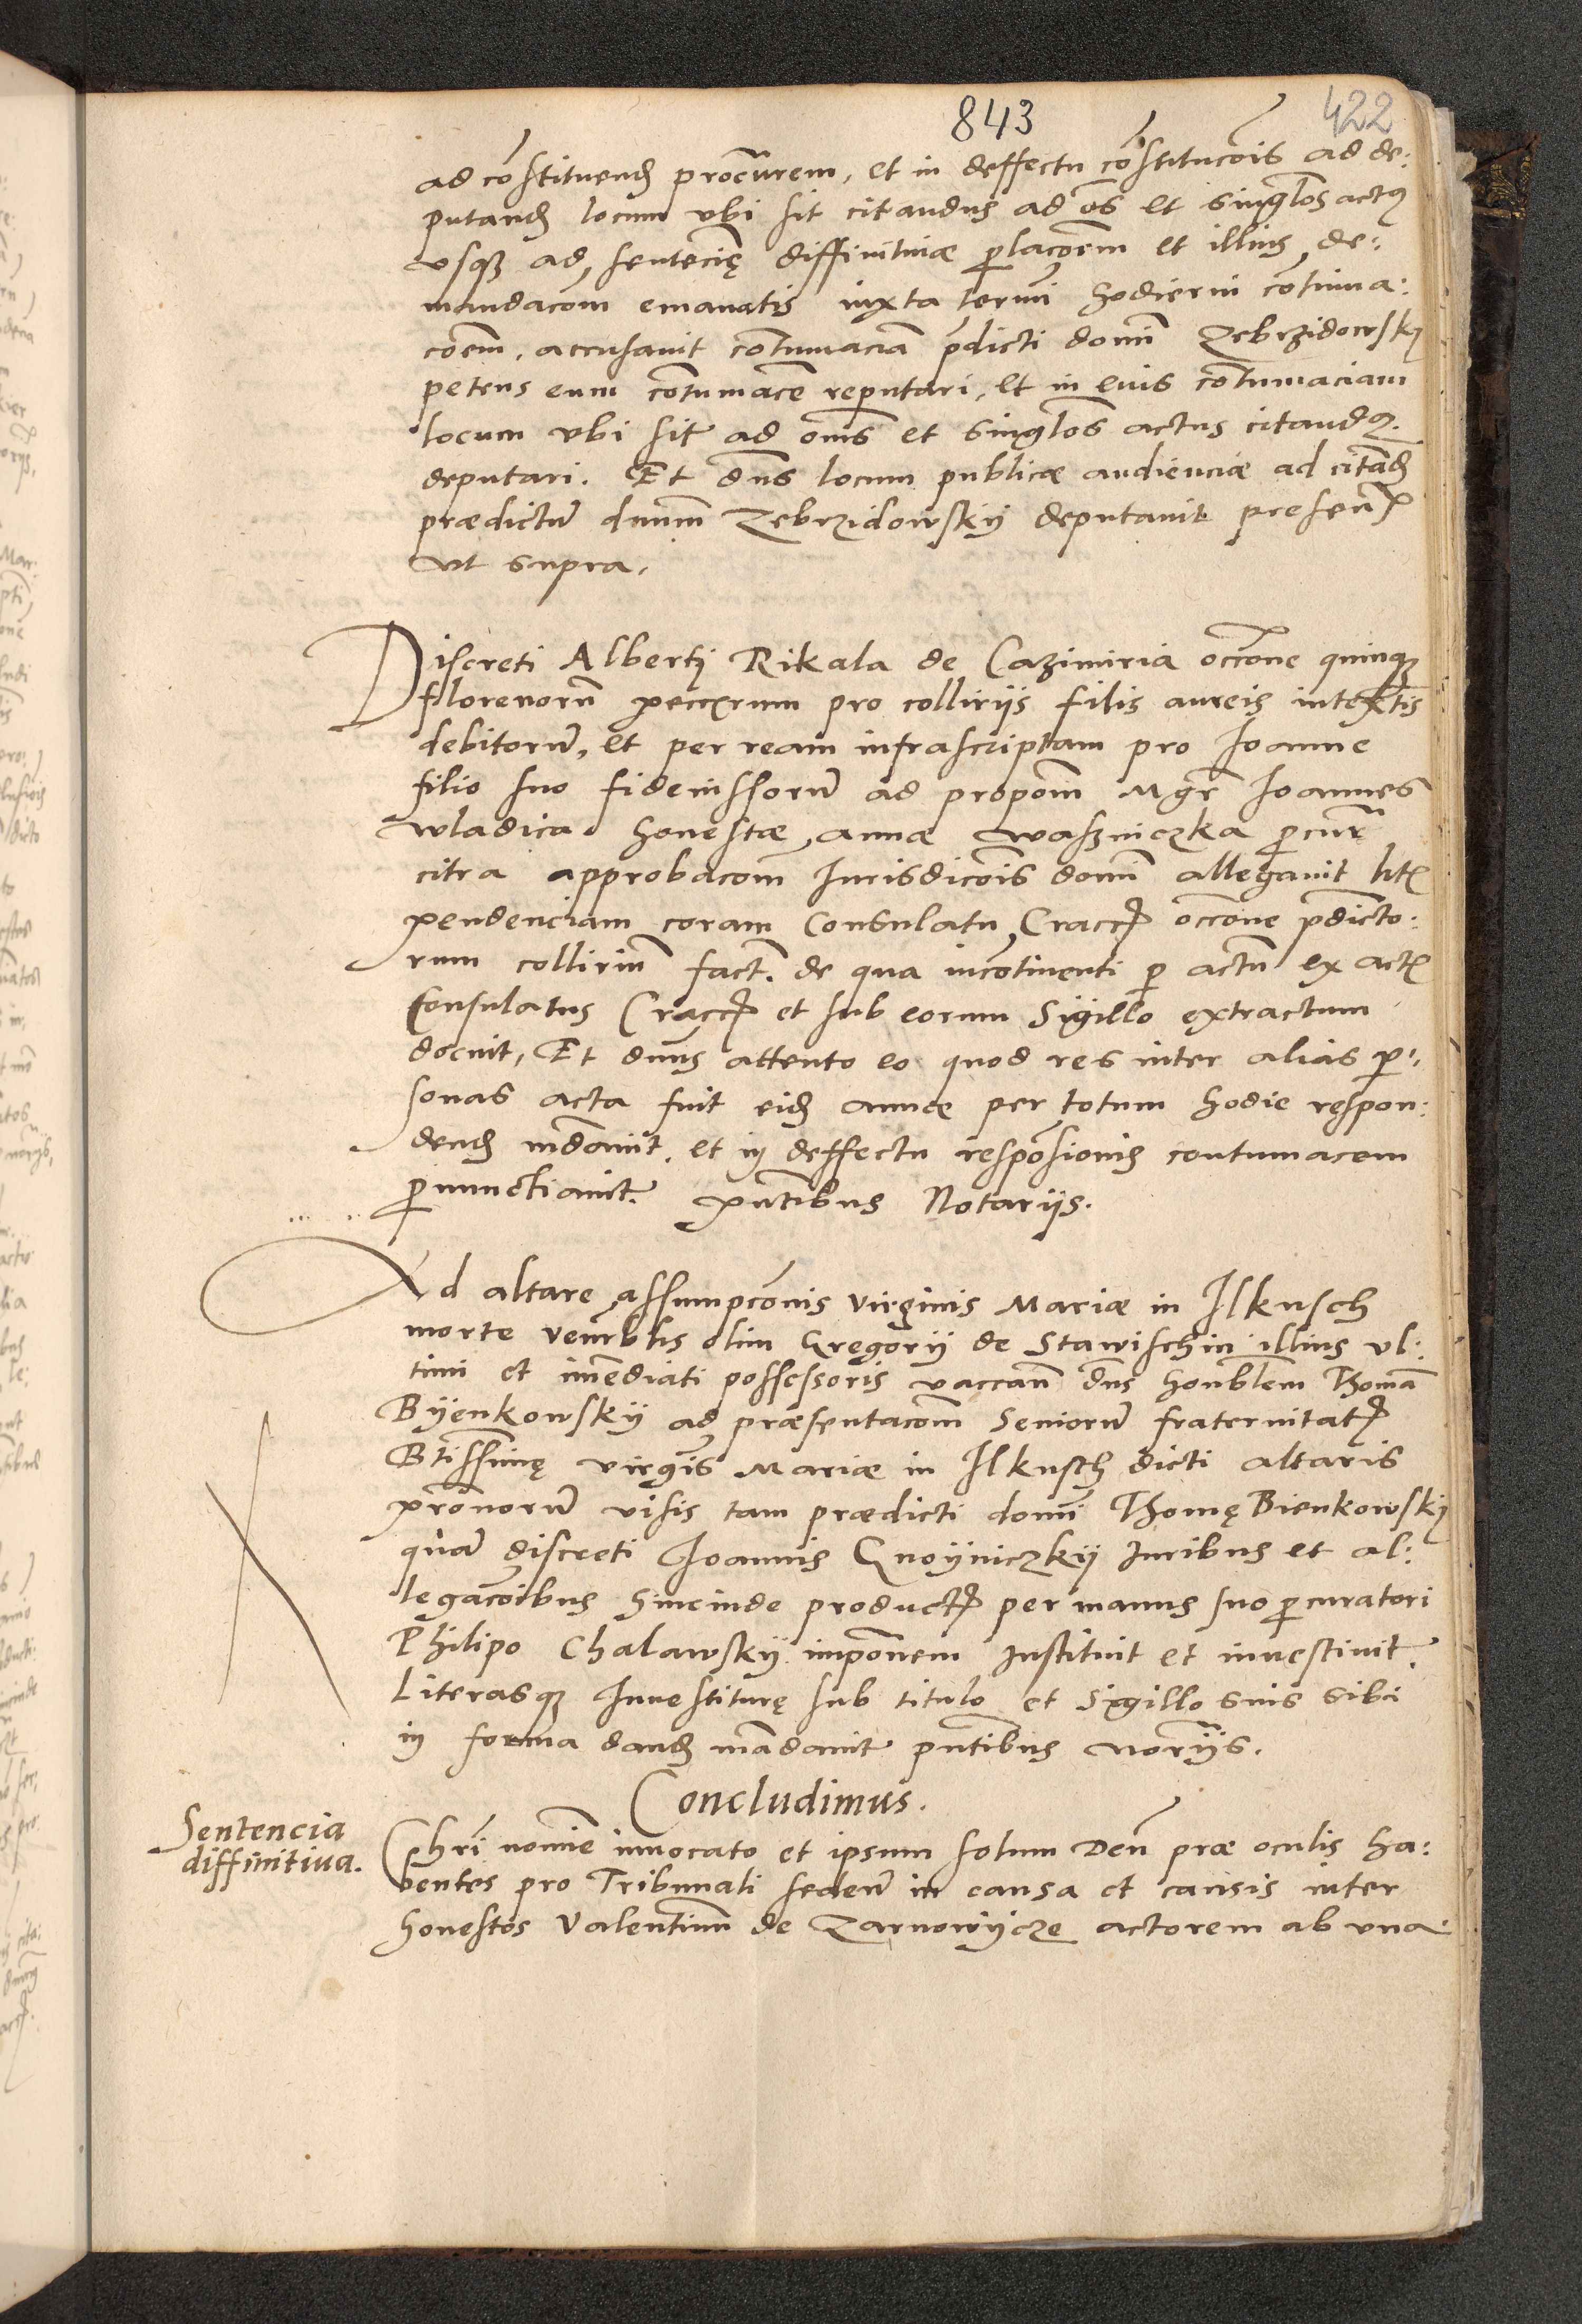 843 422
ad constituend procurem, et in deffectu constitucois ad de:
putand locum vbi sit citandus ad oes et singlos actus
vsq ad sentencię diffinitiuæ prolacoem et illius de:
mandacom emanatis iuxta termi hodierni continua:
coem, accusauit contumacia pdicti domi Zebrzidowsky
petens eum contumace reputari, et in euis contumaciam
locum vbi sit ad oms et singlos actus citandus
deputari. Et dns locum publicæ audienciæ ad citand
prædictu dnum Zebrzidowskij deputauit presen
vt supra.
Discreti Albertj Rikala de Cazimiria occone quinq
florenorum pro collirijs filis aureis intextis
debitoru, et per ream infrascriptam pro Joanne
filio suo fideiussoru ad propom Mgr Joannes
wladica honestæ annæ waszniczka procur
citra approbacom Jurisdicois domi allegauit litis
pendenciam coram Consulatu Cracc occone pdicto:
rum colliriu fact. de qua incotinenti p actu ex actis
Consulatus Cracc et sub eorum Sigillo extractum
docuit, Et dnus attento eo quod res inter alias per:
sonas acta fuit eid annæ per totum hodie respon:
dend mdauit. et in deffectu responsionis contumacem
pnunctiauit. pntibus Notarijs.
Ad altare assumpconis virginis Mariæ in Ilkusch
morte venrblis olim Gregorij de Stawischin illius vl:
timi et imediati possessoris vaccan dns honblem Thoma
Bijenkowskij ad præsentacom Senioru fraternitat
Btissimę virgis Mariæ in Ilkusch dicti altaris
pronoru visis tam prædicti domi Thomę Bienkowskij
qua discreti Joannis Gnoijniczkij Juribus et al:
legacoibus hincinde product per manus suo pcuratori
Philipo Chalawskij imponem Instituit et inuestiuit.
Literasq Inuestiturę sub titulo et Sigillo suis sibi
in forma dand madauit pntibus norijs.
Concludimus.
Sentencia
diffinitiua.
Chri nomie inuocato et ipsum solum Deu præ oculis ha:
bentes pro Tribunali seden in causa et causis inter
honestos Valentinu de Zarnowijcze actorem ab vna